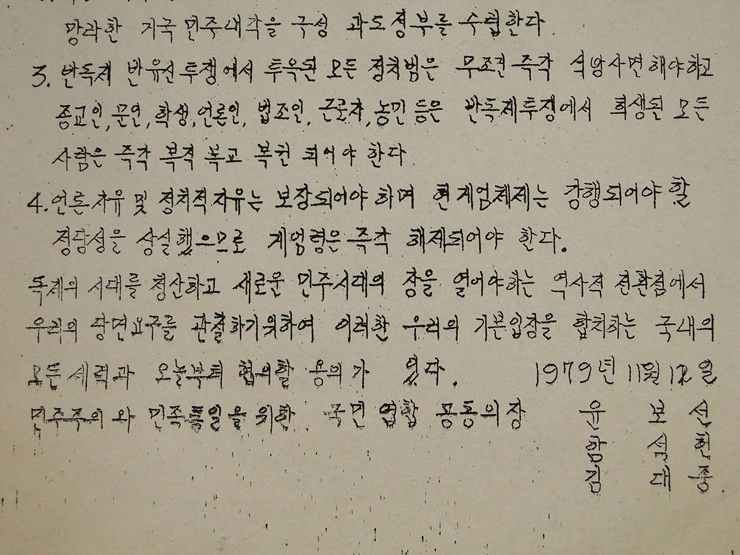 망라한 거국 민주내각을 구성 과도정부를 수립한다.
3. 반독제 반유신 투쟁에서 투옥된 모든 정치범은 무조건 즉각 석방사면해야하고
종교인, 문인, 학생, 언론인, 법조인, 근로자, 농민 등은 반독제투쟁에서 희생된 모든
사람은 즉각 복직 복교 복권 되어야 한다.
4. 언론자유 및 정치적자유는 보장되어야 하며 현 계엄체제는 강행되어야 할
정당성을 상실했으므로 계엄령은 즉각 해제되어야 한다.
독제의 시대를 청산하고 새로운 민주시대의 장을 열어야하는 역사적 전환점에서
우리의 당면요구를 관철하기위하여 이러한 우리의 기본입장을 합치하는 국내의
모든 세력과 오늘부터 협의할 용의가 있다. 1979년 11월 12일
민주주의와 민족통일을 위한 국민 연합 공동의장 윤 보 선
함 석 헌
김 대 중